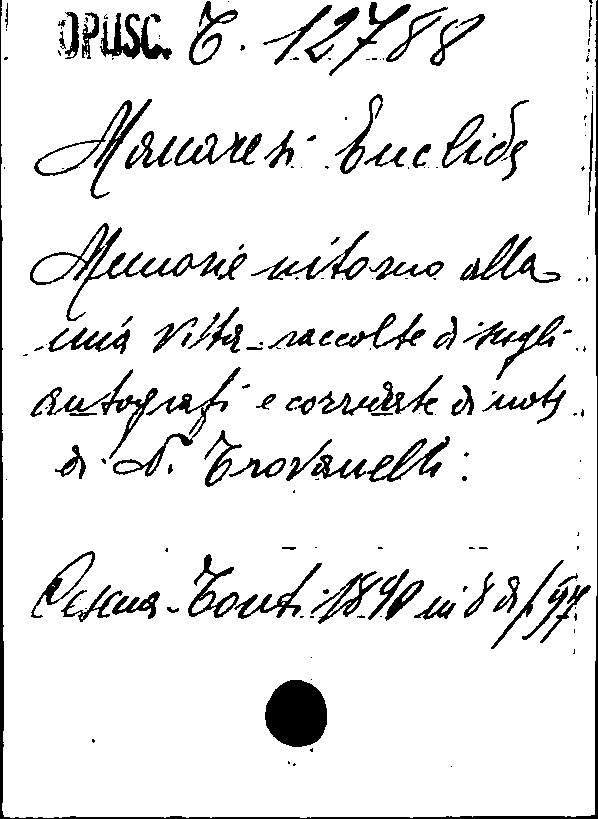 OPUSC. T. 12788
Manaresi Euclide
Memorie intorno alla
mia vita - raccolte di sugli
autografi e corredate di note
di N. Trovanelli:
Cesena - Tonti 1890 in 8 di p. 97